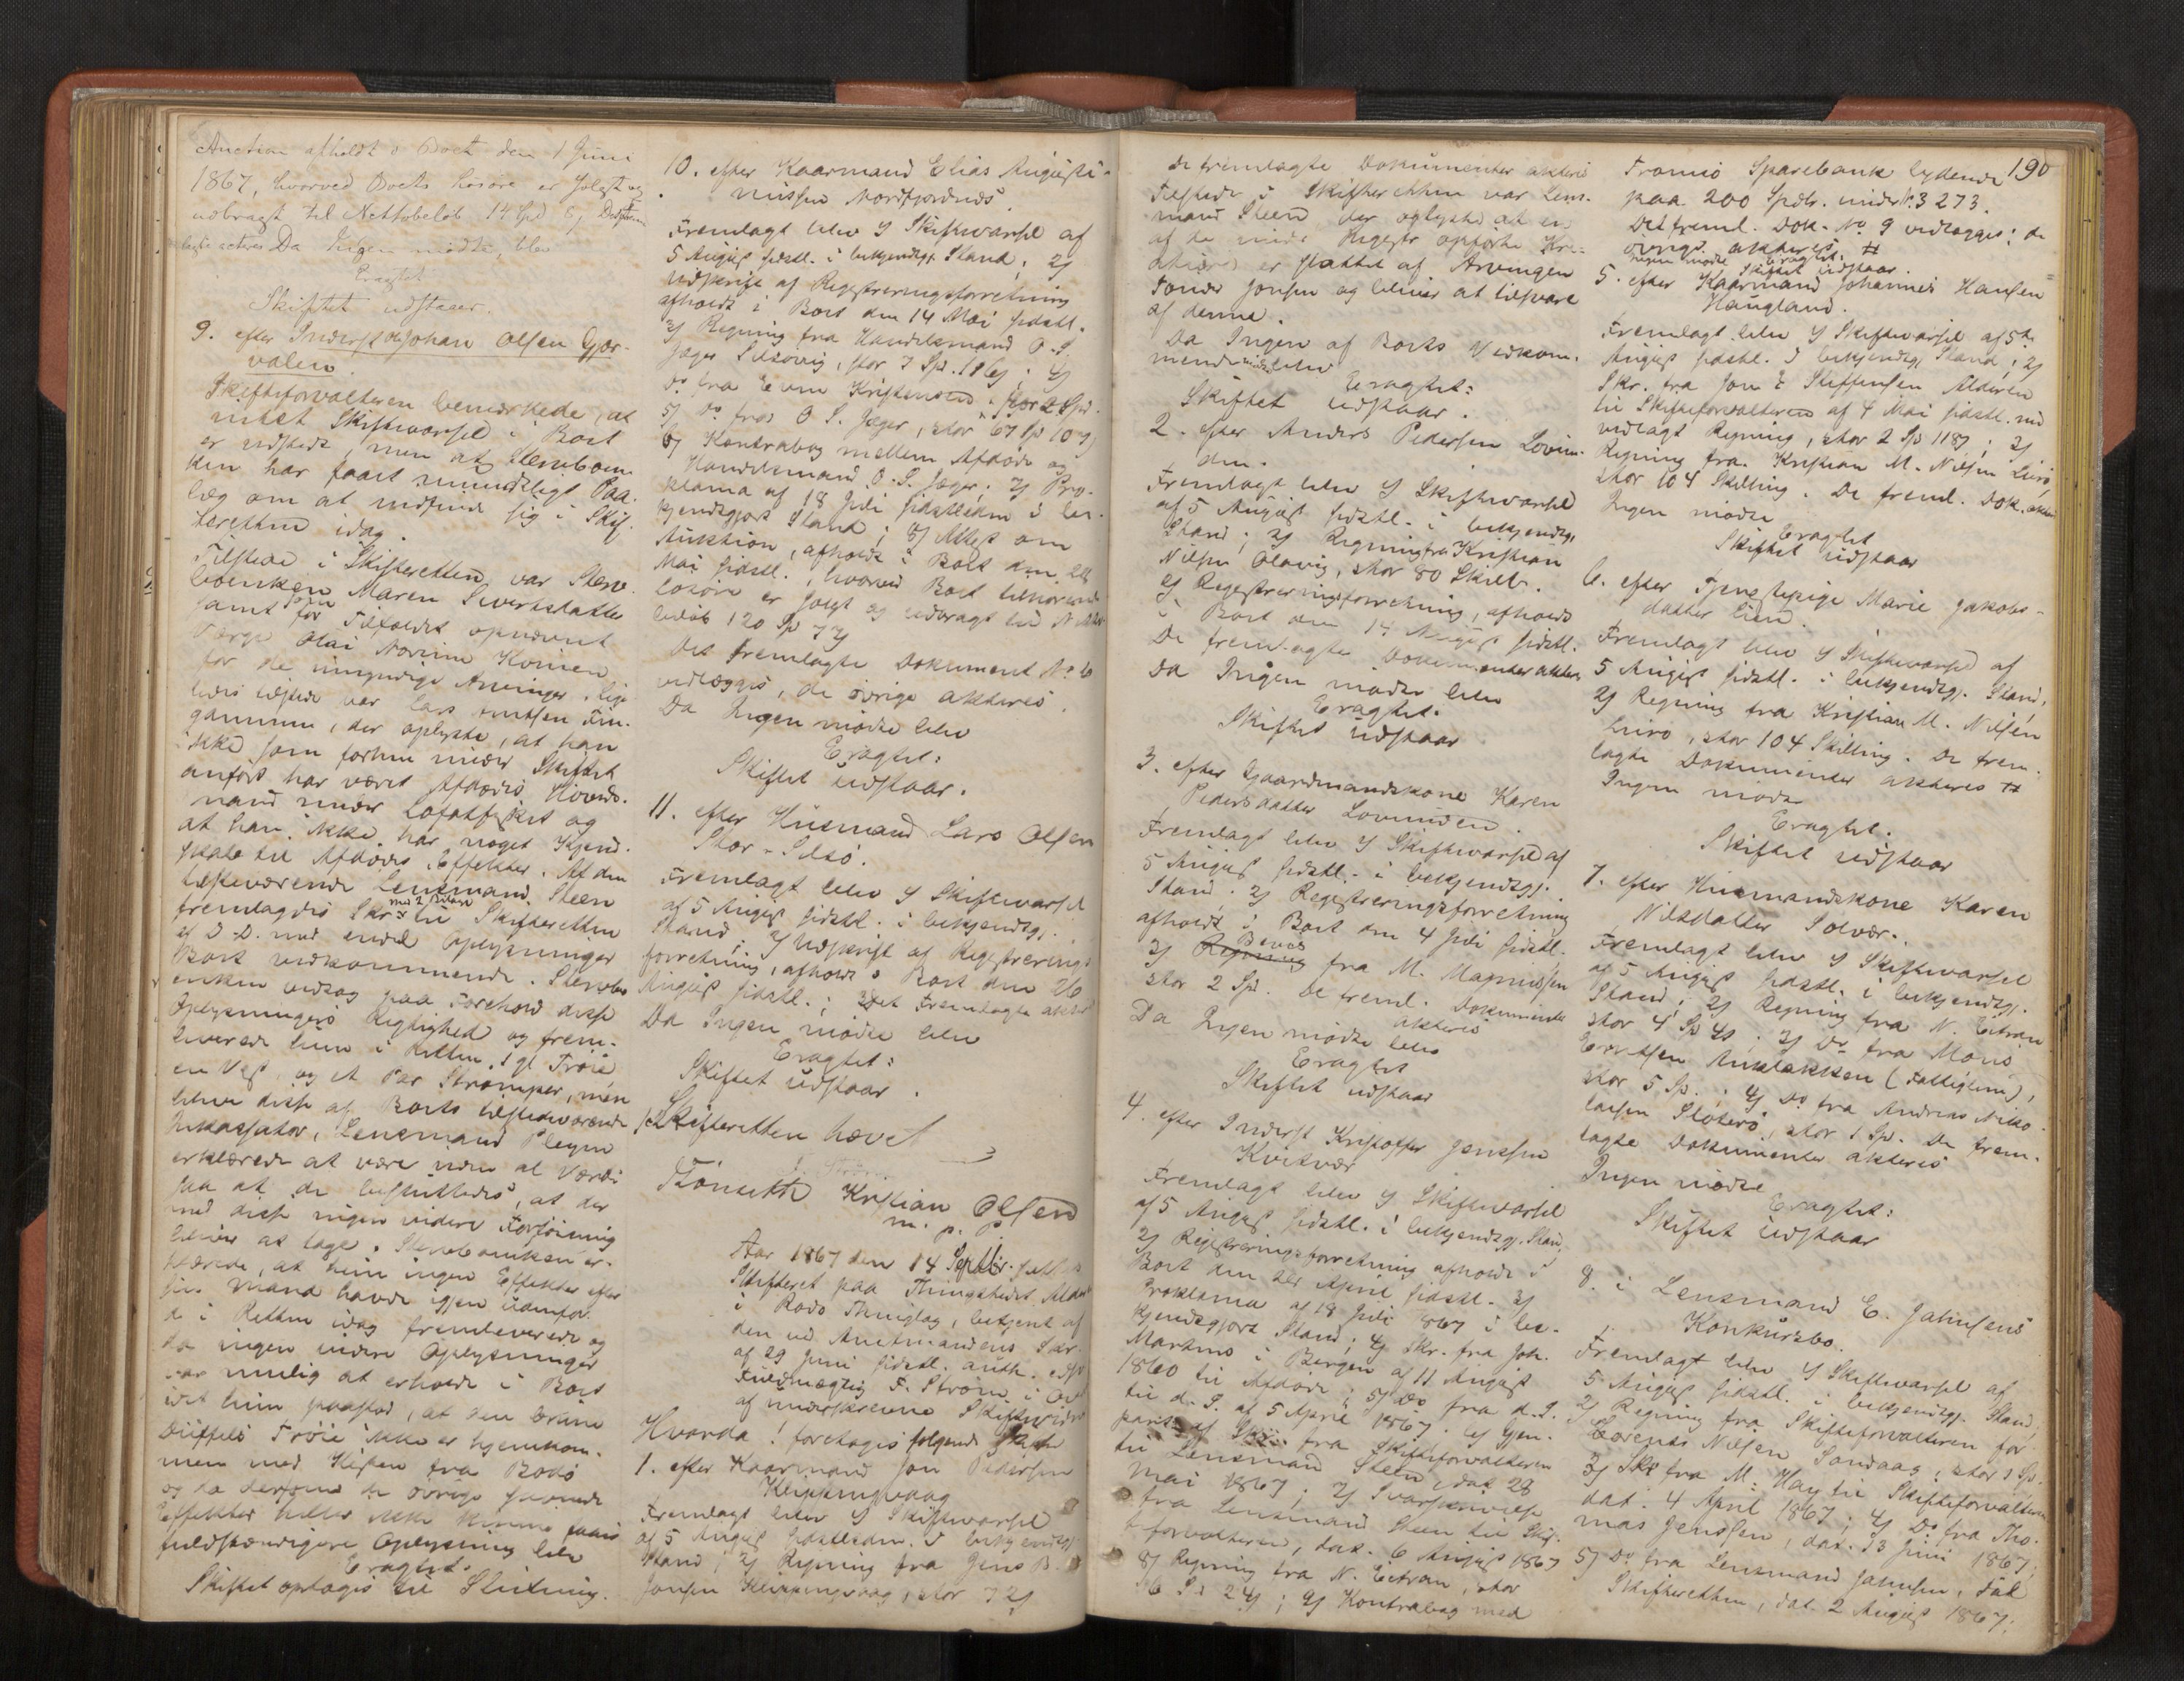 Auction afholdt i Boet den 1 Juni
1867, hvorved Boets Løsøre er solgt og
udbragt til Nettobeløb 14 Spd
Da Ingen mødte, blev
Eragtet
Skiftet udstaaer.
9. efter Inderst Johan Olsen Gjær-
valen.
Skifteforvalteren bemærkede, at
intet Skiftevarsel i Boet
er udstedt, men at Stervboen-
ken har faaet mundtligt Paa-
læg om at indfinde sig i Skif-
teretten idag.
Tilstede i Skifteretten var Sterv-
boenken Maren Sivertsdatter
samt som for Tilfældet opnævnt
Værge Olai
for de umyndige Arvinger. Lige-
ledes tilstede var Lars Knutsen Fin-
gammen, der oplyste, at han
ikke som forhen under Skiftet
anført har været Afdødes Høveds-
mand under Lofotfisket og
at han ikke har noget Kjend-
skab til Afdødes Effekter. Af den
tilstedeværende Lensmand Steen
fremlagdes Skr. med 2 Bilage til Skifteretten
af D. D. med endel Oplysninger
Boet vedkommende. Stervbo-
enken vedtog paa Forehold disse
Oplysningers Rigtighed og frem-
leverede hun i Retten 1 gl. Trøie,
en Vest, og et Par Strømper, men
blev disse af Boets tilstedeværende
Inkassator, Lensmand Pleym
erklærede at være uden al Værdi
saa at de besluttedes, at der
med disse ingen videre Forføining
bliver at tage. Stervboenken er-
klærede, at hun ingen Effekter efter
sin Mand havde igjen udenfor
de i Retten idag fremleverede og
da ingen videre Oplysninger
var mulig at erholde i Boet
idet hun paastod, at den brune
Düffels Trøie ikke er hjemkom-
men med Kisten fra Bodø
og da derfor de øvrige savnede
Effekter heller ikke kunne faaes
fuldstændigere Oplysning blev
Eragtet.
Skiftet optages til Slutning.
10. efter Kaarmand Elias Augusti-
nussen Nordfjordnes.
Fremlagt blev 1) Skiftevarsel af
5 August sidstl. i bekjendtgj. Stand; 2)
Udskrift af Registreringsforretning
afholdt i Boet den 14 Mai sidstl.
3) Regning fra Handelsmand O. S.
Jæger Selsøvig, stor 7 Sp. 116 ; 4)
do fra Even Kristensen, stor 2 Spd.
5) do fra O S. Jæger, stor 67 Sp 10
6) Kontrabog mellem Afdøde og
Handelsmand O. S. Jæger; 7) Pro-
klama af 18 Juli sidstleden i be-
kjendtgjort Stand; 8) Attest om
Auktion, afholdt i Boet den
Mai sidstl., hvorved Boet tilhørende
Løsøre er solgt og udbragt til Netto-
beløb 120 Sp
Det fremlagte Dokument No 6
vedlægges, de øvrige akteres.
Da Ingen mødte blev
Eragtet:
Skiftet udstaar.
11. efter Husmand Lars Olsen
Stor-Selsø.
Fremlagt blev 1) Skiftevarsel
af 5 August sidstl. i bekjendtgj.
Stand; 2) Udskrift af Registrerings-
forretning, afholdt i Boet den 26
August sidstl.; Det Fremlagte akteres
Da Ingen mødte blev
Eragtet:
Skiftet udstaar.
Skifteretten hævet
J. Strøm
Tønseth Kristian Olsen
m. p. P
Aar 1867 den 14 Septbr. sattes
Skifteret paa Thingstedet
i Rødø Thinglag, betjent af
den ved Amtmandens Skr.
af 29 Juni sidstl. auth.
Fuldmægtig F. Strøm i Ov
af underskrevne Skiftevidner
Hvorda! foretages følgende Skifter
1. efter Kaarmand Jon Pedersen
Klippingvaag
Fremlagt blev 1) Skiftevarsel
af 5 August sidstleden i bekjendtgj.
Stand; 2) Regning fra Jens B.
Jonsen Klippingvaag, stor 72
190
de fremlagte Dokumenter akteres
Tilstede i Skifteretten var Lens-
mand Steen, der oplyste at en
af de under Registr opførte Kre-
aturer er slagtet af Arvingen
Tonder Jonsen og bliver at tilsvare
af denne.
Da Ingen af Boets Vedkom-
mende mødte blev
Eragtet:
Skiftet udstaar.
2. efter Anders Pedersen Lovun-
den.
Fremlagt blev 1) Skiftevarsel
af 5 August sidstl. i bekjendtgj.
Stand; 2) Regning fra Kristian
Nilsen Olavig, stor 80 Skill.
3) Registreringsforretning, afholdt
i Boet den 14 August sidstl.
De fremlagte Dokumenter akteres
Da Ingen mødte blev
Eragtet.
Skiftet udstaar.
3. efter Gaardmandskone Karen
Pedersdatter Lovunden.
Fremlagt blev 1) Skiftevarsel af
5 August sidstl. i bekjendtgj.
Stand; 2) Registreringsforretning
afholdt i Boet den 4 Juli sidstl.
3) Bevis fra M. Magnussen
stor 2 Spd. De freml. Dokumenter
akteres
Da Ingen mødte blev
Eragtet
Skiftet udstaar
4. efter Inderst Kristoffer Jenssen
Kvitvær
Fremlagt blev 1) Skiftevarsel
af 5 August sidstl. i bekjendtgj. Stand,
2) Registreringsforretning afholdt i
Boet den April sidstl. 3)
Proklama af 18 Juli 1867 i be-
kjendtgjort Stand; 4) Skr. fra Joh.
Martens i Bergen af 11 August
1860 til Afdøde; 5) Do fra d. S.
til d. S. af 5 April 1867. 6) Gjen-
part af Skr. fra Skifteforvalteren
til Lensmand Steen dat 28
Mai 1867; 7) Svarskrivelse
fra Lensmand Steen til Skif-
teforvalteren, dat. 6 August 1867
8) Regning fra N. Eitran, stor
6 Spd 24 ; 9) Kontrabog med
Tromsø Sparebank lydende
paa 200 Spdlr. under No 3273.
Det freml. Dok. No 9 vedlægges; de
øvrige akteres.
Ingen mødte Eragtet:
Skiftet udstaar.
5. efter Kaarmand Johannes Hansen
Haugland.
Fremlagt blev 1) Skiftevarsel af 5te
August sidstl. i bekjendtgj. Stand; 2)
Skr. fra Jon Steffensen Alderen
til Skifteforvalteren af 4 Mai sidstl. med
vedlagt Regning, stor 2 Sp 118 ; 3)
Regning fra Kristian M. Nilsen Lurø,
stor 104 Skilling. De freml. Dok. akteres
Ingen mødte
Eragtet
Skiftet udstaar
6. efter Tjenestepige Marie Jakobs-
datter Lien.
Fremlagt blev 1) Skiftevarsel af
5 August sidstl. i bekjendtgj. Stand,
2) Regning fra Kristian M. Nilsen
Lurø, stor 104 Skilling. De frem-
lagte Dokumenter akteres
Ingen mødte
Eragtet.
Skiftet udstaar
7. efter Husmandskone Karen
Nilsdatter Solvær.
Fremlagt blev 1) Skiftevarsel
af 5 August sidstl. i bekjendtgj.
Stand; 2) Regning fra N. Eitran
stor 4 Sp ; 3) Do fra Mons
Evertsen Auklakken (Fattiglem),
stor 5 Sp.; 4) Do fra Andreas Niko-
laisen Sloterø, stor 1 Sp. De frem-
lagte Dokumenter akteres
Ingen mødte
Eragtet:
Skiftet udstaar
8. i Lensmand E. Jahnsens
Konkursbo.
Fremlagt blev 1) Skiftevarsel af
5 August sidstl. i bekjendtgj. Stand,
2) Regning fra Skifteforvalteren for
Lorents Nilsen Sandaag, stor 1 Sp.
3) Skr fra M. Hay til Skifteforvalteren
dat. 4 April 1867; 4) Do fra Tho-
mas Jenssen, dat. 13 Juni 1867;
5) Do fra Lensmand Jahnsen, til
Skifteretten, dat. 2 August 1867;